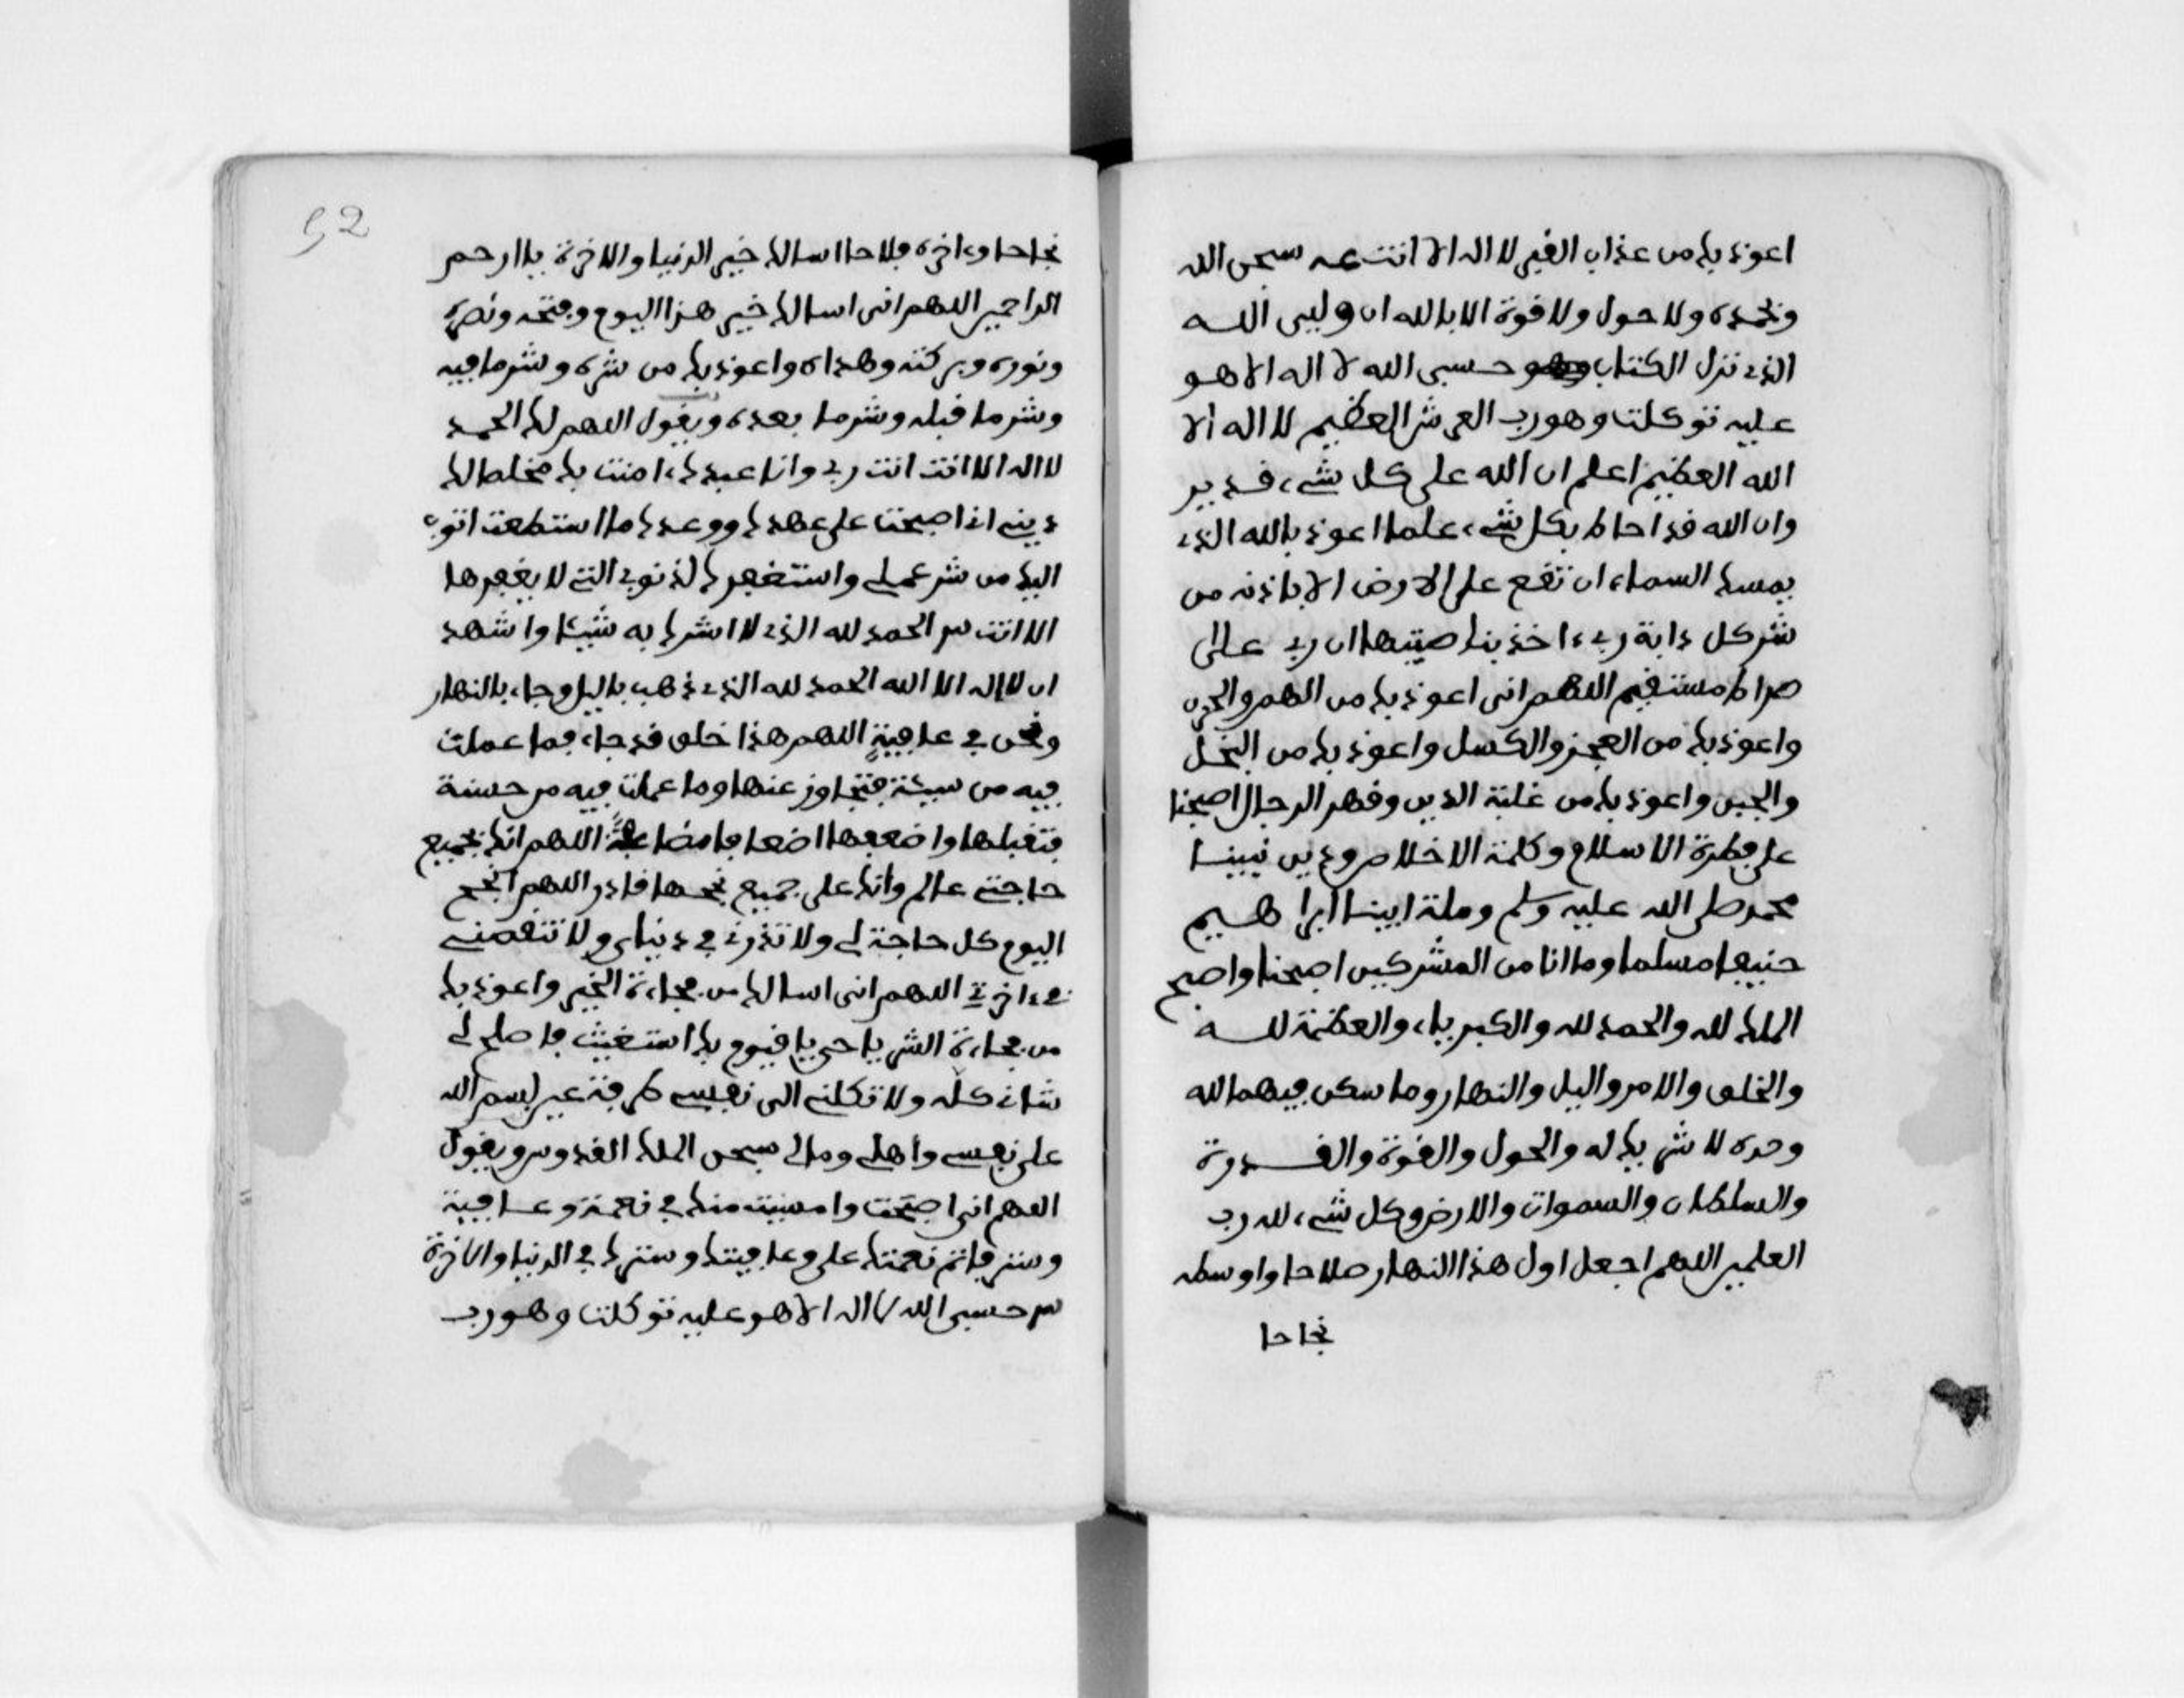 اعوذ بك من عذاب القبر لا اله الا انت عـه سبحن الله
وبحمده ولا حول ولا قوة الا بالله ان وليى الله
الذى نزل الكتاب وهو حسبى الله لا اله الا هو
عليه توكلت وهو رب العرش العظيم لا اله الا
الله العظيم اعلم ان الله على كل شىء قدير
وان الله قد احاط بكل شىء علما اعوذ بالله الذى
يمسك السماء ان تقع على الارض الا باذنه من
شر كل دابة ربى ءاخذ بناصيتها ان ربى على
صراط مستقيم اللهم انى اعوذ بك من الهم والحزن
واعوذ بك من العجز والكسل واعوذ بك من البخل
والجبن واعوذ بك من غلبة الدين وقهر الرجال اصبحنا
على فطرة الاسلام وكلمة الاخلاص ودين نبينا
محمد صلى الله عليه وسلم وملة ابينا ابراهيم
حنيفا مسلما وما انا من المشركين اصبحنا واصبح
الملك لله والحمد لله والكبرياء والعظمة لله
والخلق والامر واليل والنهار وما سكن فيهما لله
وحده لا شريك له والحول والقوة والقدرة
والسلطان والسموات والارض وكل شىء لله رب
العلمين اللهم اجعل اول هذا النهار صلاحا واوسطه
نجاحا
52
نجاحا وءاخره فلاحا اسالك خير الدنيا والاخرة يا ارحم
الراحمين اللهم انى اسالك خير هذا اليوم وفتحه ونصره
ونوره وبركته وهداه واعوذ بك من شره وشر ما فيه
وشر ما قبله وشر ما بعده ويقول اللهم لك الحمد
لا اله الا انت انت ربى وانا عبدك ءامنت بك مخلصا لك
دينى انى اصبحت على عهدك ووعدك ما استطعت اتوب
اليك من شر عملى واستغفرك لذنوبى التى لا يغفرها
الا انت س الحمد لله الذى لا اشرك به شيئا واشهد
ان لا اله الا الله الحمد لله الذى ذهب باليل وجاء بالنهار
ونحن فى عافية اللهم هذا خلق قد جاء فما عملت
فيه من سيئة فتجاوز عنها وما عملت فيه من حسنة
فتقبلها واضعفها اضعافا مضاعفة اللهم انك بجميع
حاجتى عالم وانك على جميع نجحها قادر اللهم انجح
اليوم كل حاجة لى ولا تزدنى فى دنياى ولا تنقصنى
فى ءاخرتى اللهم انى اسالك من فجاءة الخير واعوذ بك
من فجاءة الشر يا حى يا قيوم بك استغيث فاصلح لى
شانى كله ولا تكلنى الى نفسى طرفة عين بسم الله
على نفسى واهلى ومالى سبحن الملك القدوس ويقول
اللهم انى اصبحت وامسيت منك فى نعمة وعافية
وستر فاتم نعمتك على وعافيتك وسترك فى الدنيا والاخرة
س حسبى الله لا اله الا هو عليه توكلت وهو رب